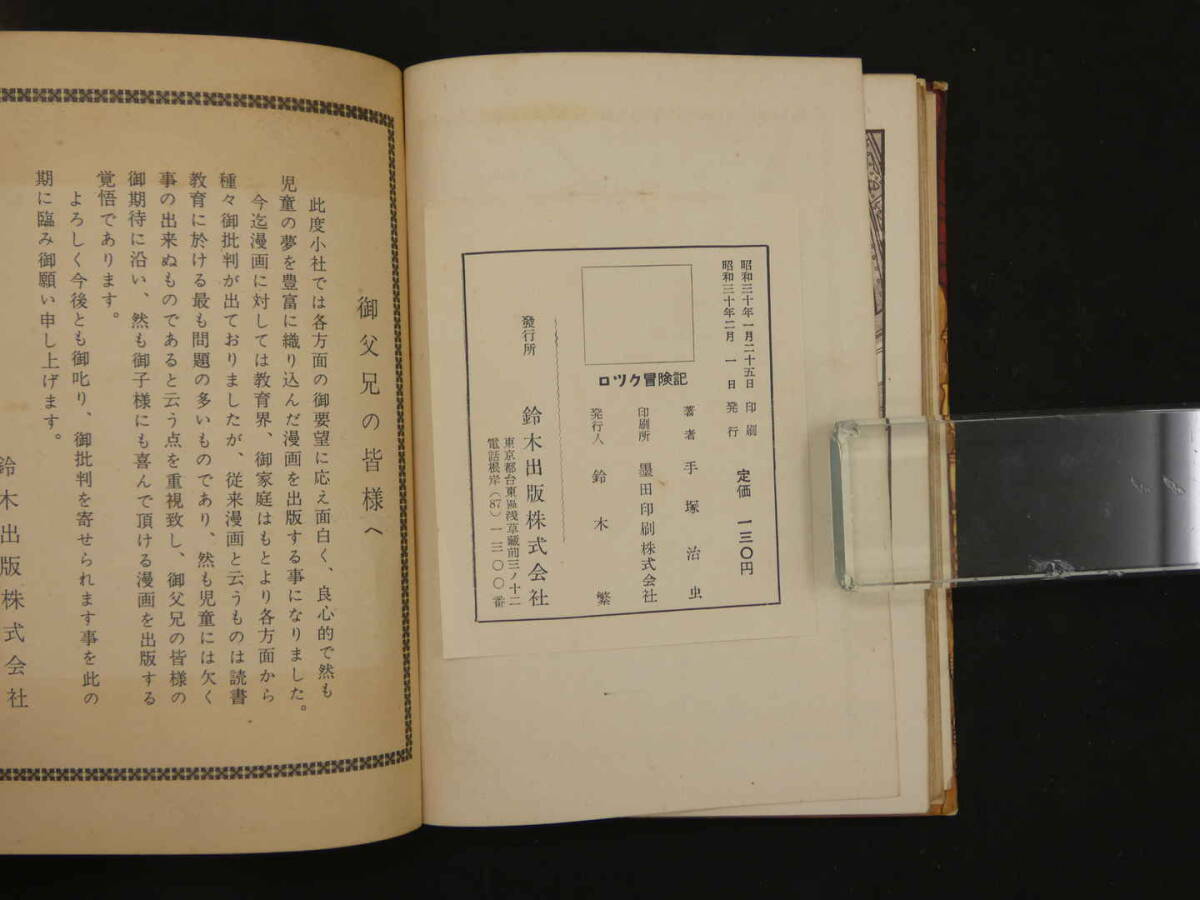 昭和三十年一月二十五日 印刷
昭和三十年二月 一日 発行
定価 一三〇円
ロツク冒険記
著者 手塚治虫
印刷所 墨田印刷株式会社
発行人 鈴木繁
發行所
鈴木出版株式会社
東京都台東區浅草蔵前三ノ十二
電話根岸(87)一三〇〇番
御父兄の皆様へ
此度小社では各方面の御要望に応え面白く、良心的で然も
児童の夢を豊富に織り込んだ漫画を出版する事になりました。
今迄漫画に対しては教育界、御家庭はもとより各方面から
種々御批判が出ておりましたが、従来漫画と云うものは読書
教育に於ける最も問題の多いものであり、然も児童には欠く
事の出来ぬものであると云う点を重視致し、御父兄の皆様の
御期待に沿い、然も御子様にも喜んで頂ける漫画を出版する
覚悟であります。
よろしく今後とも御叱り、御批判を寄せられます事を此の
期に臨み御願い申し上げます。
鈴木出版株式会社